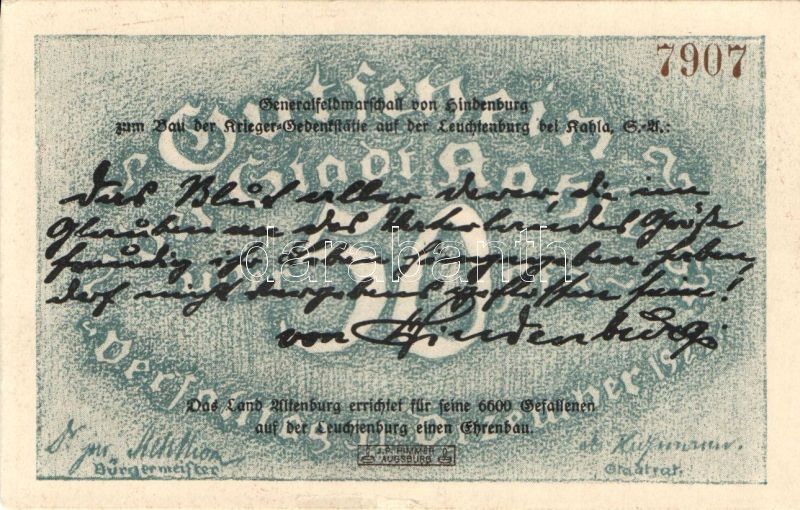 7907
Gutschein
Generalfeldmarschall von Hindenburg
zum Bau der Krieger-Gedenkstätte auf der Leuchtenburg bei Kahla, S.-A.:
der Stadt Kahla
Das Blut aller derer, die im
Glauben an des Vaterlandes Größe
freudig ihr Leben hingegeben haben,
darf nicht vergebens geflossen sein!
50
von Hindenburg
darabanth
Das Land Altenburg errichtet für seine 6600 Gefallenen
auf der Leuchtenburg einen Ehrenbau.
Bürgermeister
Stadtrat.
J.P. HIMMER
AUGSBURG